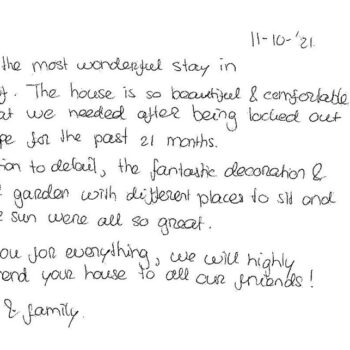 11-10-'21
the most wonderful stay in
. The house is so beautiful & comfortable
at we needed after being locked out
pe for the past 21 months.
ion to detail, the fantastic decoration &
garden with different places to sit and
e sun were all so great.
ou for everything, we will highly
end your house to all our friends!
& family.